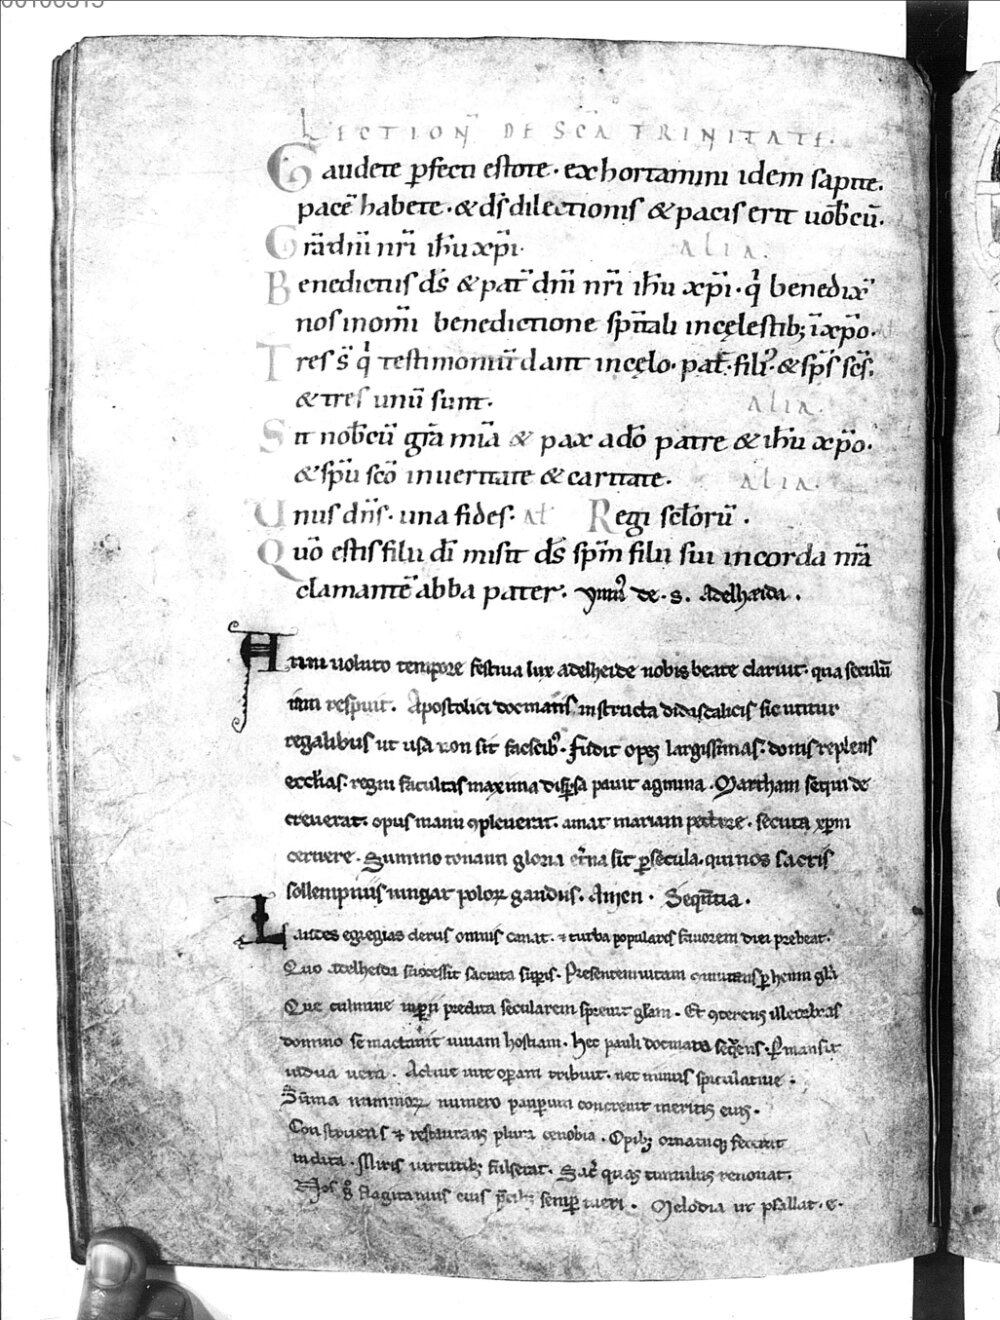 LECTION̄ DE SC̄A TRINITATE.
Gaudete ꝑfecti estote · exhortamini idem sapite.
pacē habete · & ds̄ dilectionis & pacis erit uob̄cū.
Grā dn̄i nr̄i ih̄u xp̄i. ALIA.
Benedictus ds̄ & pat̄ dn̄i nr̄i ih̄u xp̄i · q̄ benedix̄
nos in om̄i benedictione sp̄itali in cęlestib; ī xp̄o.
Tres s̄ q̄ testimoniū dant in cęlo · pat̄ · fili᷒ · & sp̄s sc̄s.
& tres unū sunt. ALIA.
Sit nob̄cū gr̄a mīa & pax a dō patre & ih̄u xp̄o.
& sp̄u scō in ueritate & caritate. ALIA.
Unus dn̄s · una fides. Al̄ Regi sc̄torū .
Quō estis filii dī misit ds̄ sp̄m filii sui in corda nr̄a
clamantē abba pater. ymn᷒ de · s. Adelheida .
Atuni uoluto tempore festiua lux adelheide nobis beate claruit · qua seculū
respuit. Apostolici docmatis instructa didascalicis sic utitur
regalibus ut usa non sit fascib᷒. Fudit opes largissimas · donis replens
ecc̄lias · regni facultas maxima disꝑsa pauit agmina . Martham sequi de
creuerat · opus manū ꝯpleuerat · amat mariam pectore · secuta xp̄m
cernere . Summo tonanti gloria et̄na sit ꝑ secula · qui nos sacris
sollempniis iungat poloꝝ gaudiis. Amen . Sequn̄tia .
Laudes egregias clerus omnis canat · ⁊ turba popularis fauorem diei prebeat.
Quo adelheida successit sacrata suꝑis. Presentem uitam ꝑhenni gl̄a
Que culmine predita secularem spreuit gl̄am. Et ꝯterens illecebras
domino sē mactauit uiuam hostiam. Hec pauli docmata seq̄ens · ꝑmansit
uidua uera . Actiue uite oꝑam tribuit · nec minus speculatiue .
Sūma nummoꝝ numero pauꝑum concreuit meritis eius.
Construens ⁊ restaurans plura cenobia . Opib; ornatuq; fecerit
indita. Miris uirtutib; fulserat. quas tumulus renouat.
Nos g̊ flagitamus eius p̄cib; semꝑ tueri . Melodia ut psallat · e·